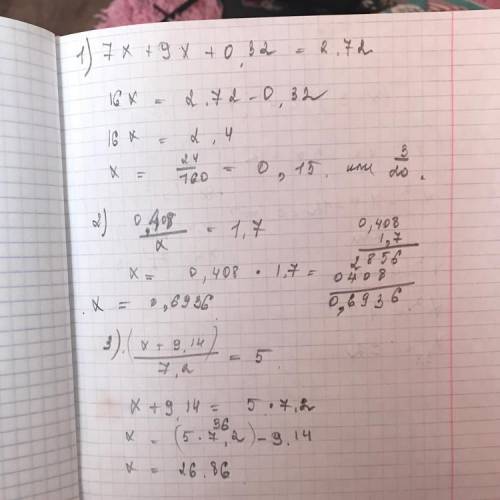 1) 7x + 9x + 0,32 = 2.72
16x = 2.72 - 0,32
16x = 2,4
x = 24/160 = 0,15. или 3/20.
2) 0,408/x = 1,7
x = 0,408 · 1,7 =
x = 0,6936
0,408
1,7
2856
0408
0,6936
3). (x + 9,14)/7,2 = 5
x + 9,14 = 5 · 7,2
36
x = (5 · 7,2) - 9.14
x = 26.86